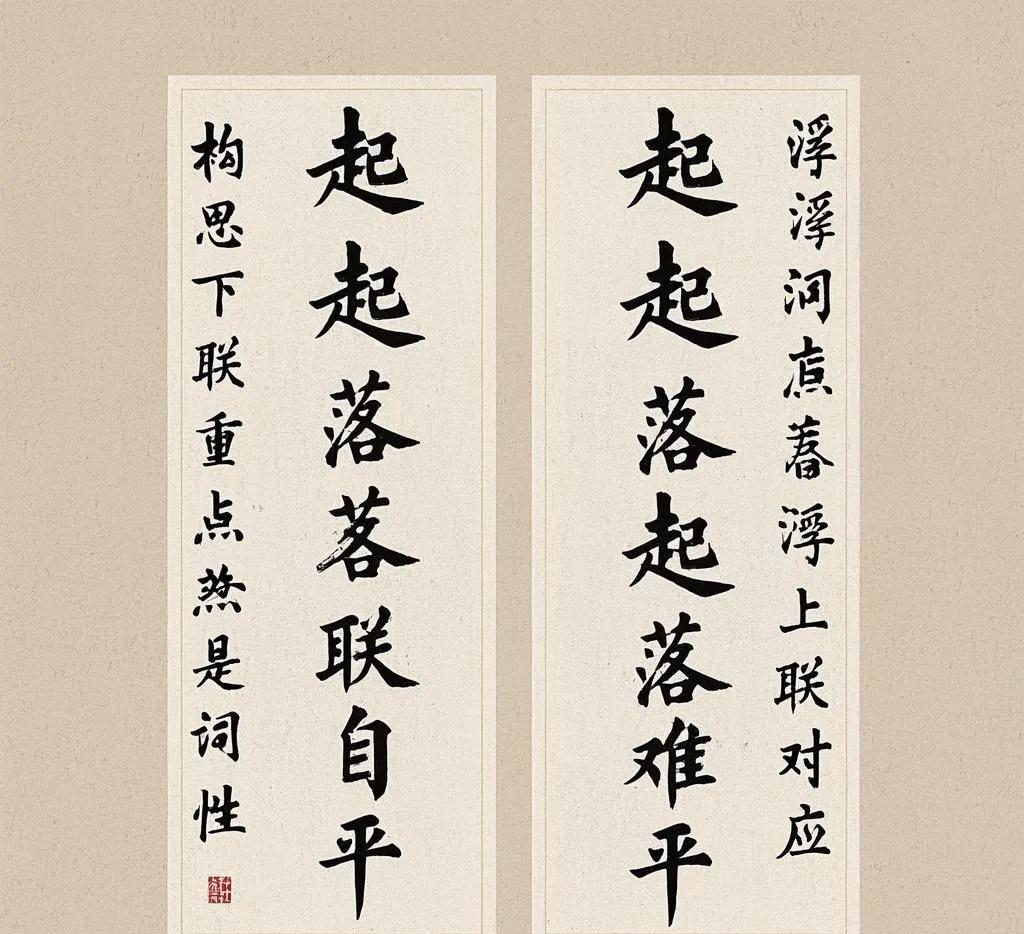 浮浮上联对应
起起落起落难平
起起落茖联自平
构思下联重点是词性